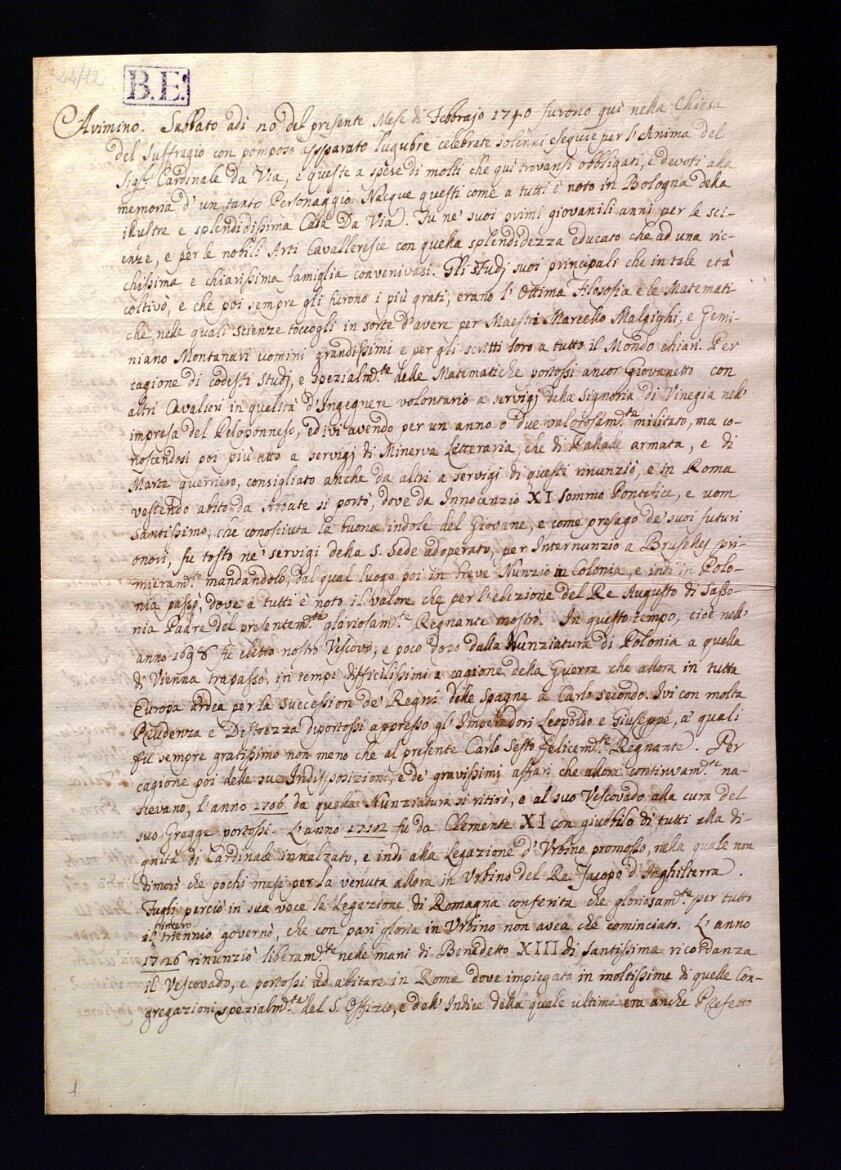 22/12
B.E.
Arimino. Sabbato adi 20 del presente Mese di Febbrajo 1740 furono quì nella Chiesa
del Suffragio con pomposo apparato lugubre celebrate solenni esequie per l'Anima del
Sig.r Cardinale da Via, e queste a spese di molti che quì trovansi obbligati, e devoti alla
memoria d'un tanto Personaggio. Nacque questi come a tutti è noto in Bologna della
illustre e splendidissima Casa Da Via. Fu ne' suoi primi giovanili anni per le sci-
enze, e per le nobili Arti Cavalleresce con quella splendidezza educato che ad una ric-
chissima e chiarissima famiglia convenivasi. Gli studj suoi principali che in tale età
coltivò, e che poi sempre gli furono i più grati, erano l'Ottima Filosofia e le Matemati-
che, nelle quali scienze toccogli in sorte d'avere per Maestri Marcello Malpighi, e Gemi-
niano Montanari uomini grandissimi e per gli scritti loro a tutto il Mondo chiari. Per
cagione di codesti studj, e spezialm.te delle Matematiche portossi ancor Giovanetto con
altri Cavalieri in qualità d'Ingegnere volontario a servigj della Signoria di Vinegia nell'
impresa del Peloponneso, ed ivi avendo per un anno o due valorosam.te militato, ma co-
noscendosi poi più atto a servigj di Minerva Letteraria, che di Pallade armata, e di
Marte guerriero, consigliato anche da altri a servigj di questi rinunziò, e in Roma
vestendo abito da Abbate si portò, dove da Innocenzio XI sommo Pontefice, e uom
santissimo, che conosciuta la buona indole del Giovane, e come presago de' suoi futuri
onori, fu tosto ne' servigi della S. Sede adoperato, per Internunzio a Bruselles pri-
mieram.te mandandolo, dal qual luogo poi in breve Nunzio in Colonia, e indi in Polo-
nia passò, dove a tutti è noto il valore che per l'elezione del Re Augusto di Sasso-
nia Padre del presentem.te gloriosam.te Regnante mostrò. In questo tempo, cioè nell'
anno 1698 fu eletto nostro Vescovo, e poco dopo dalla Nunziatura di Polonia a quella
di Vienna trapassò, in tempi difficilissimi a cagione della Guerra che allora in tutta
Europa ardea per la succession de' Regni delle Spagne a Carlo secondo. Ivi con molta
Prudenza e Destrezza diportossi appresso gl'Imperadori Leopoldo e Giuseppe, a' quali
fu sempre gratissimo non meno che al presente Carlo Sesto felicem.te Regnante. Per
cagione poi delle sue Indisposizioni, e de' gravissimi affari che allora continuam.te na-
scevano, l'anno 1706 da quella Nunziatura si ritirò, e al suo Vescovado alla cura del
suo Gregge portossi. L'anno 1712 fu da Clemente XI con giubilo di tutti alla di-
gnità di Cardinale innalzato, e indi alla Legazione d'Urbino promosso, nella quale non
dimorò che pochi mesi per la venuta allora in Urbino del Re Jacopo d'Inghilterra.
Fugli perciò in sua vece la Legazione di Romagna conferita che gloriosam.te per tutto
il intero triennio governò, che con pari gloria in Urbino non avea che cominciato. L'anno
1726 rinunziò liberam.te nelle mani di Benedetto XIII di santissima ricordanza
il Vescovado, e portossi ad abitare in Roma dove impiegato in moltissime di quelle Con-
gregazioni spezialm.te del S. Offizio, e dell'Indice della quale ultima era anche Prefetto
1